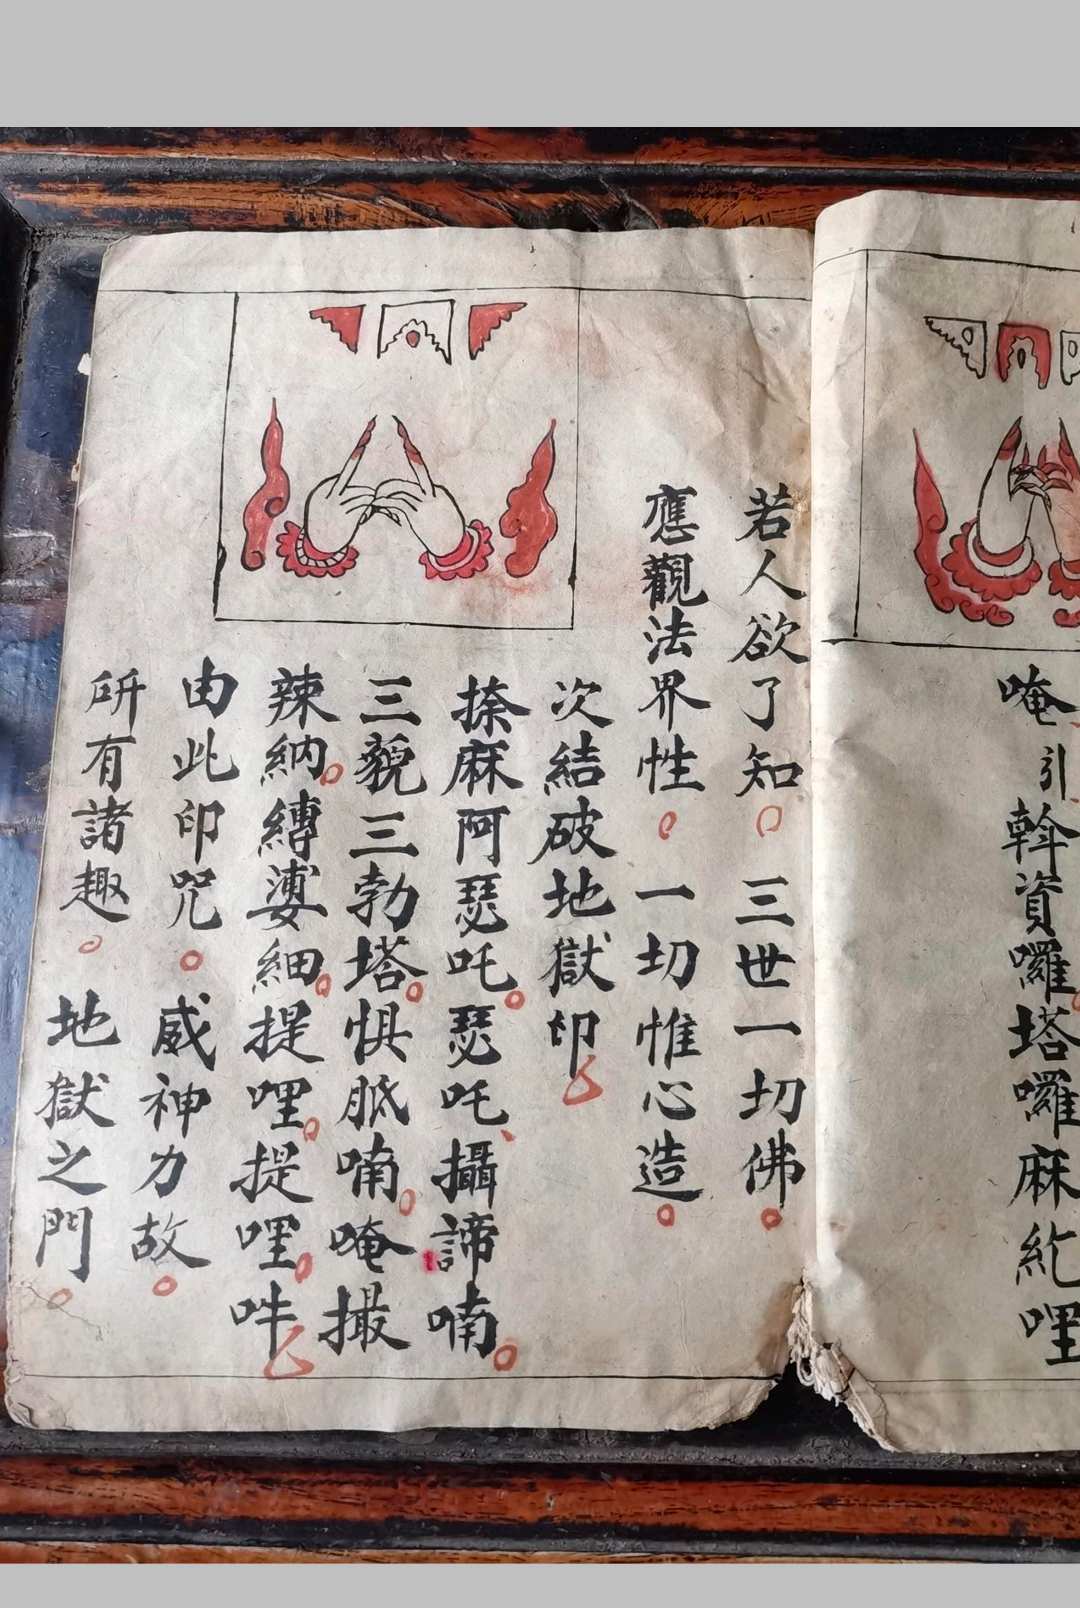 唵引斡資囉塔囉麻紇哩
若人欲了知。三世一切佛。
應觀法界性。一切惟心造。
次結破地獄印
捺麻阿瑟吒。瑟吒、攝諦喃。
三藐三勃塔。惧胝喃。唵撮
辣納。縛婆細。提哩。提哩。吽
由此印咒。威神力故。
所有諸趣。地獄之門。